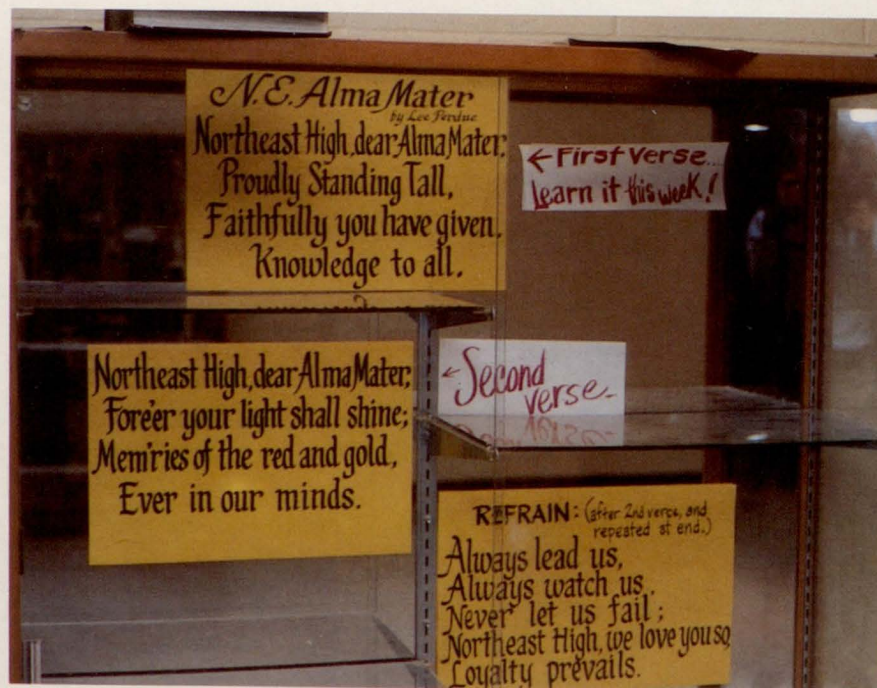 N.E. Alma Mater
by Lee Perdue
Northeast High, dear Alma Mater,
Proudly Standing Tall,
Faithfully you have given,
Knowledge to all.
← First Verse...
Learn it this week!
Northeast High, dear Alma Mater,
Fore'er your light shall shine;
Mem'ries of the red and gold,
Ever in our minds.
← Second
verse.
REFRAIN: (after 2nd verse, and
repeated at end.)
Always lead us,
Always watch us,
Never let us fail;
Northeast High, we love you so,
Loyalty prevails.